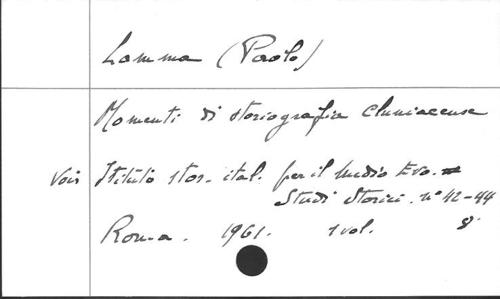 Lamma (Paolo)
Momenti di storiografia cluniacense
Voir Istituto stor. ital. per il Medio Evo. =
Studi Storici. n° 42-44
Roma. 1961. 1 vol. 8°